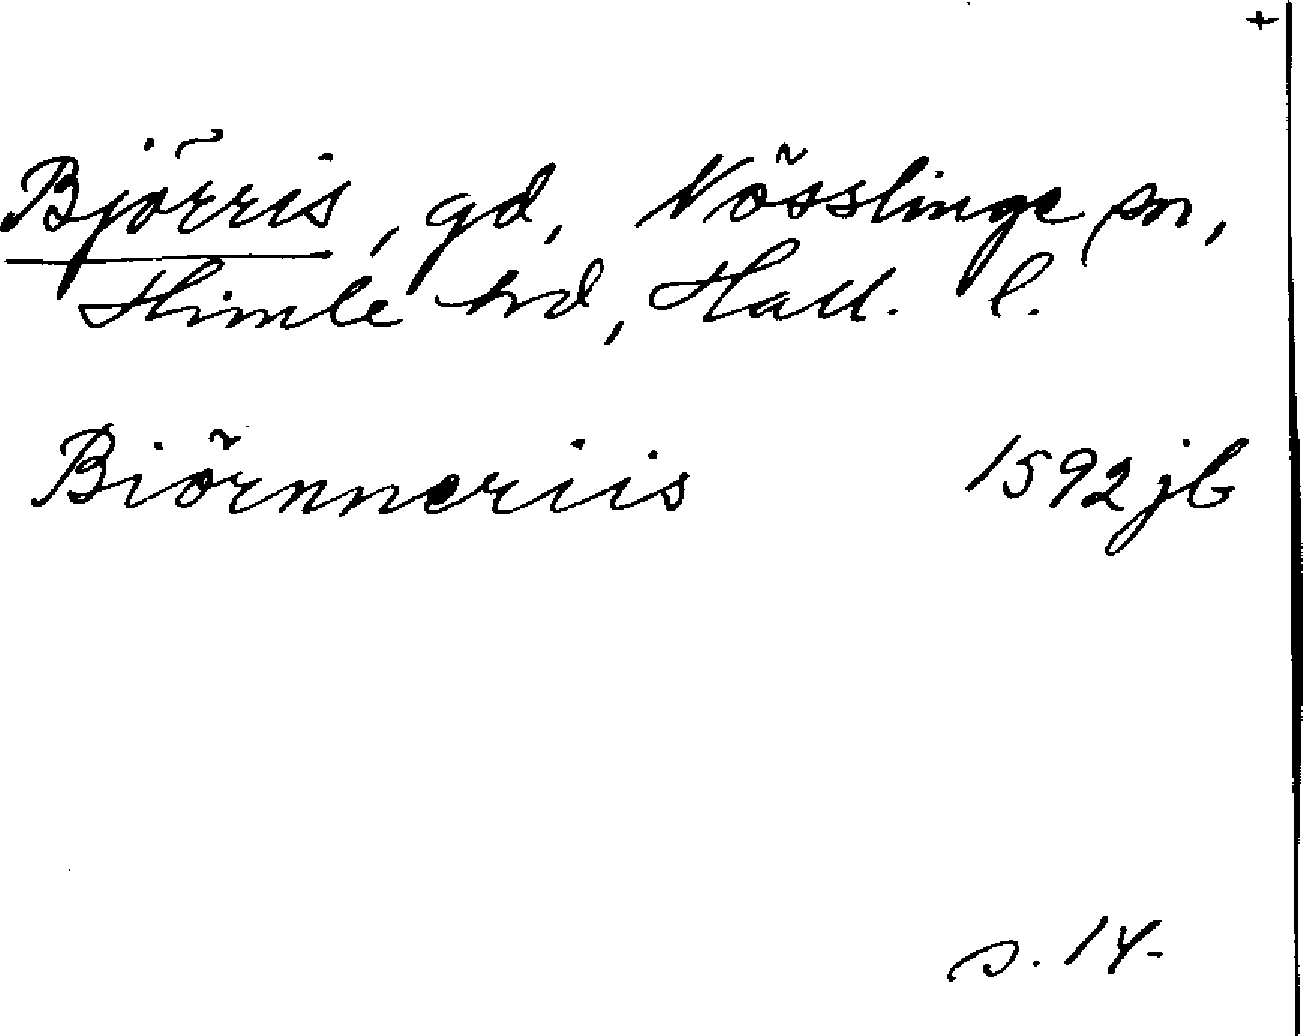 +
Björris, gd, Nösslinge sn,
Himle hd, Hall. l.
Biörnneriis 1592 jb
s. 14